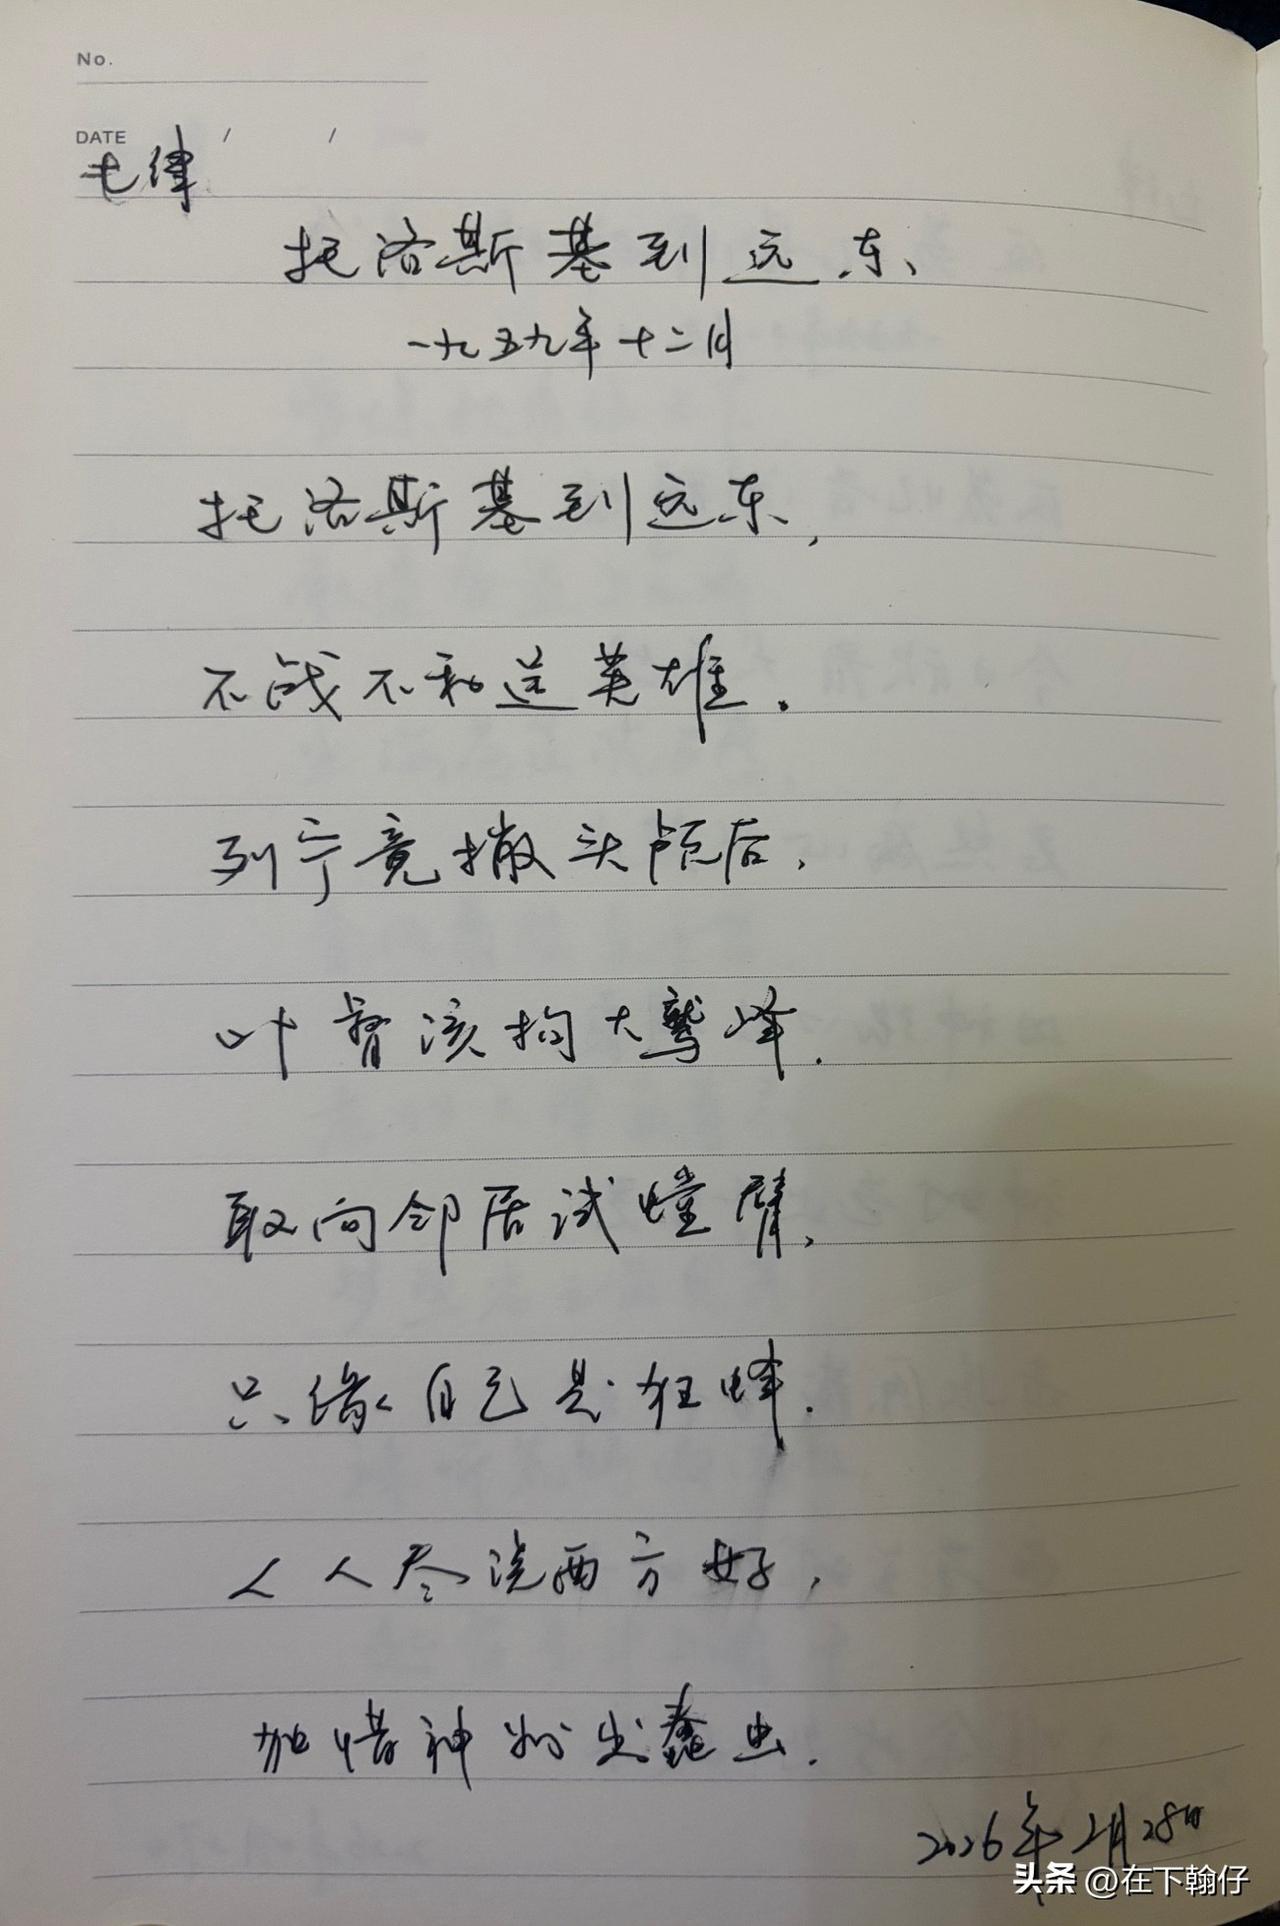 No.
DATE / /
七律
托洛斯基到远东、
一九五九年十二月
托洛斯基到远东,
不战不和送英雄.
列宁竟撇头颅后,
叶督该拘大鹫峰.
敢向邻居试螳臂,
只缘自己是狂蜂.
人人尽说西方好,
加惜神州出蠢虫.
2026年2月28日
头条 @在下翰仔